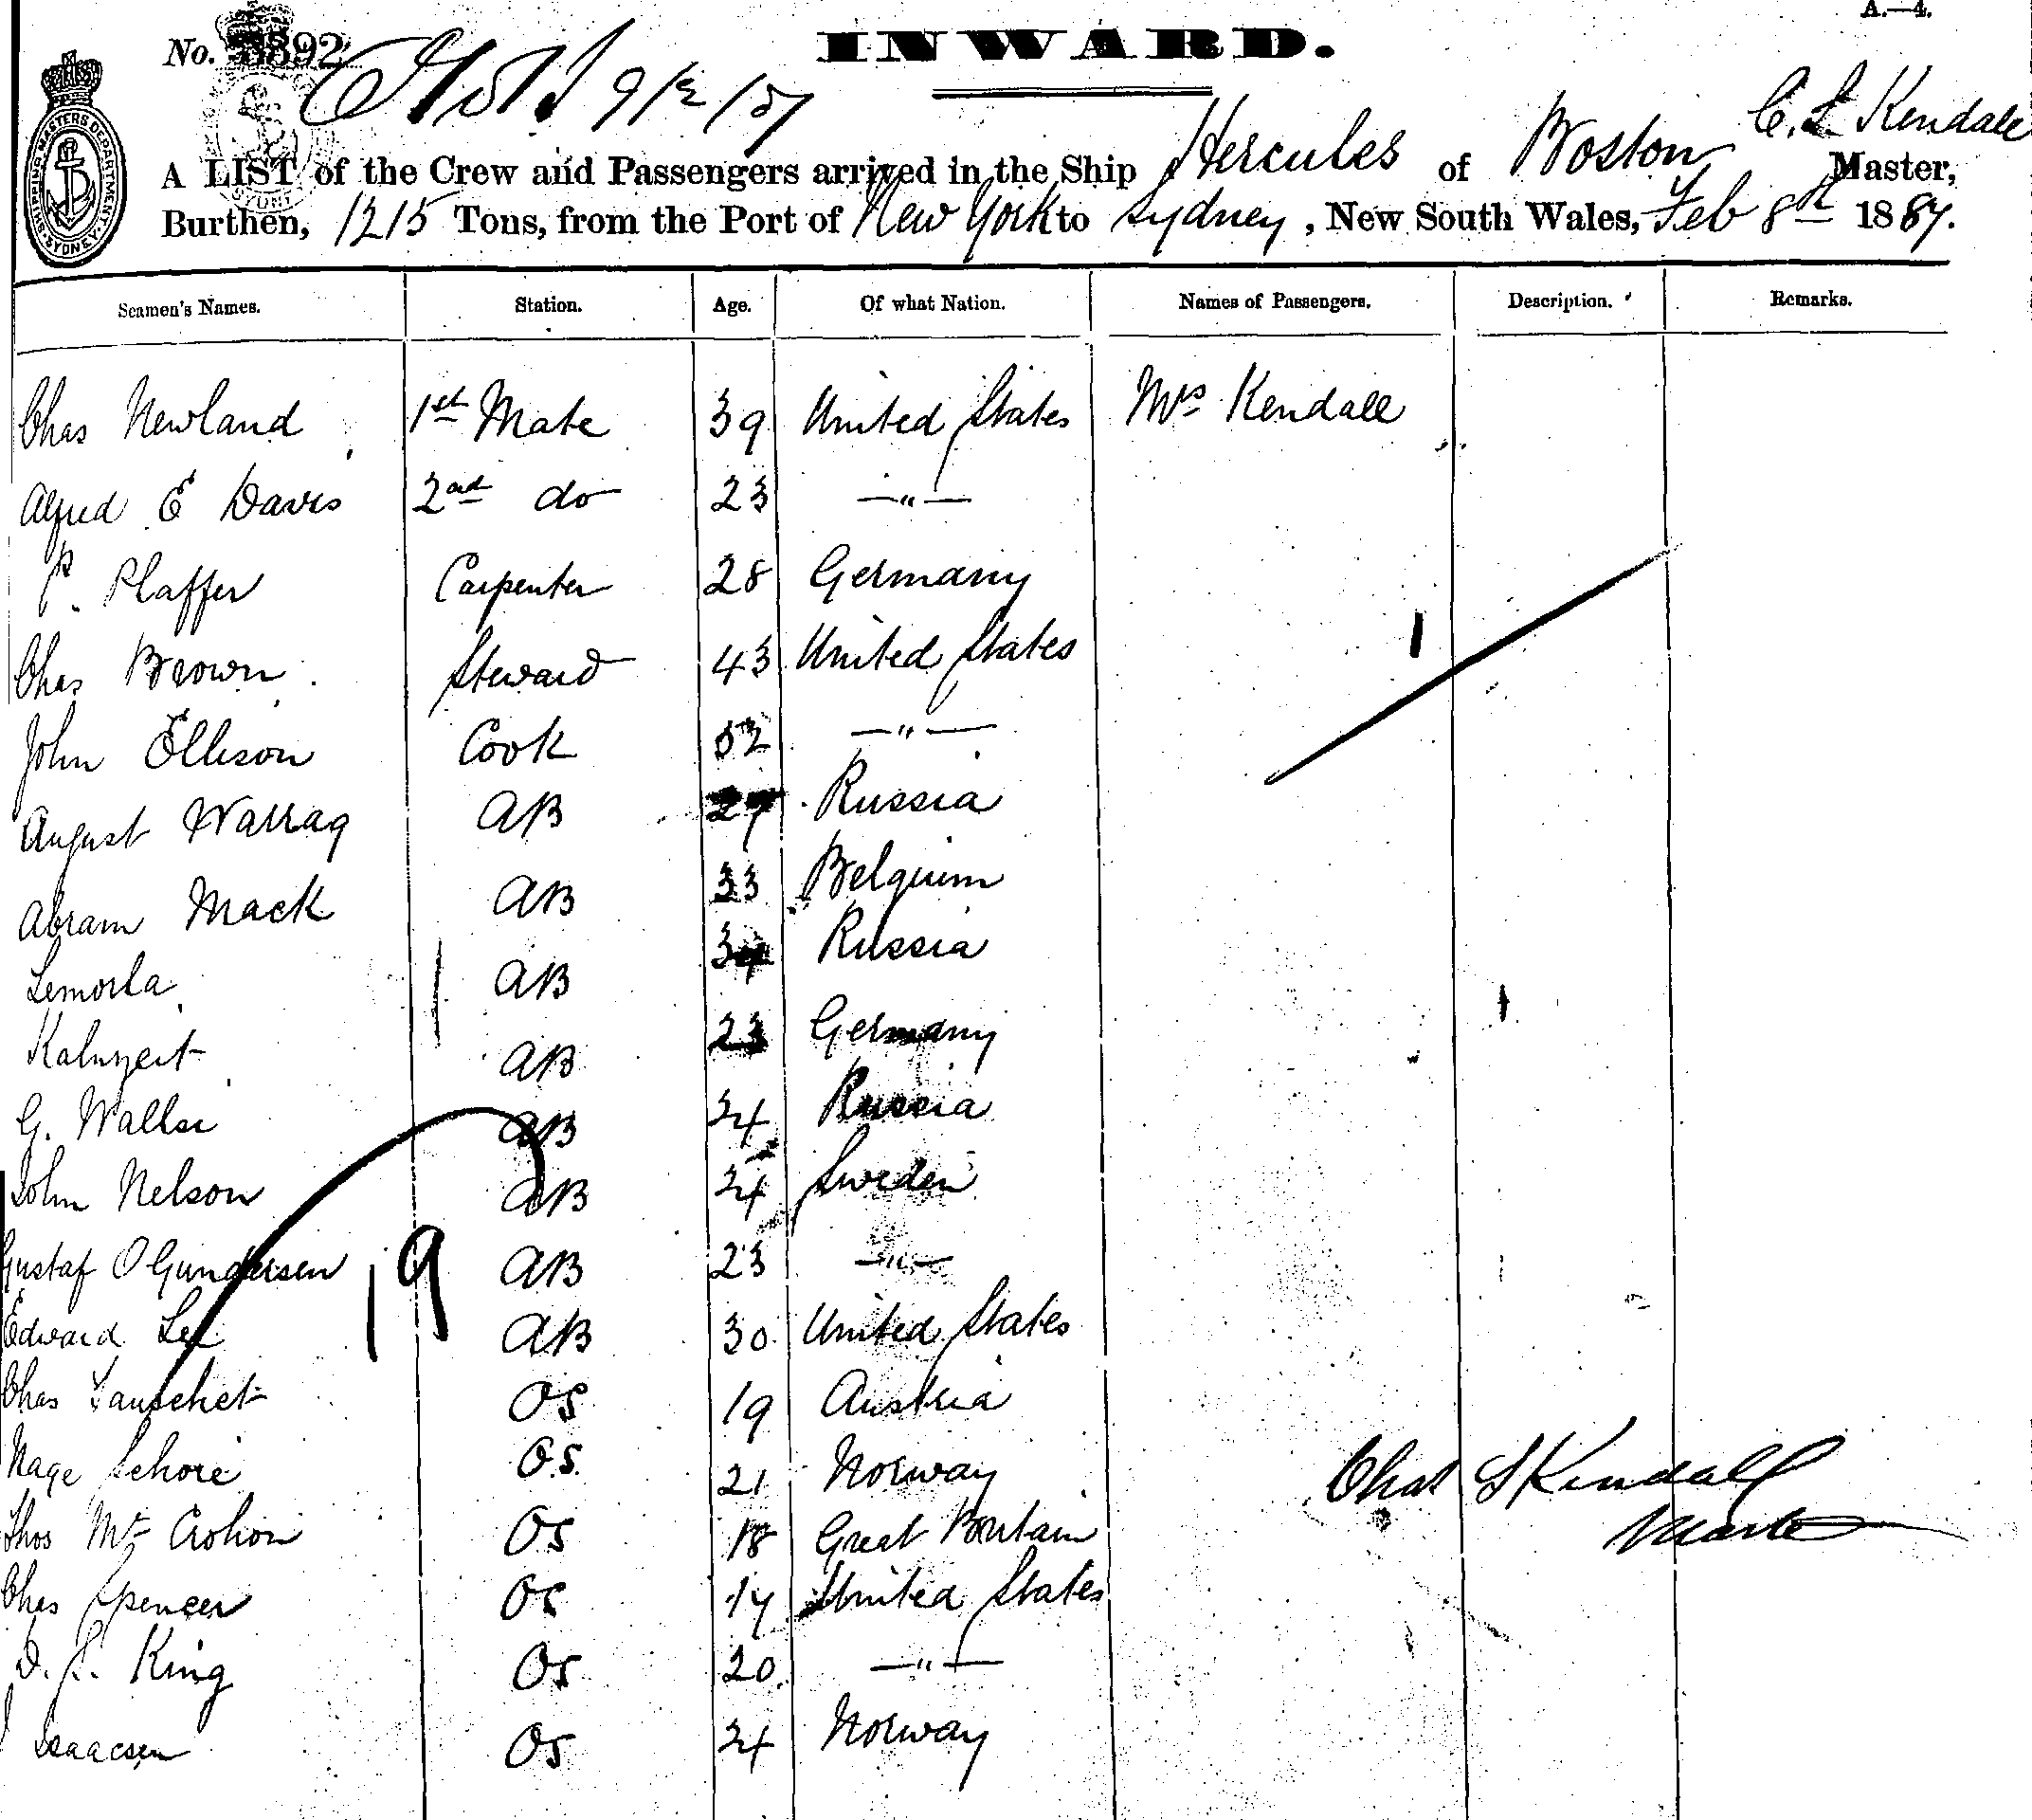 A.—4.
No. 8892
INWARD.
SHIPPING MASTERS DEPARTMENT SYDNEY
A LIST of the Crew and Passengers arrived in the Ship Hercules of Boston C. L. Kendall Master,
Burthen, 1215 Tons, from the Port of New York to Sydney, New South Wales, Feb 8th 1887.
Seamen's Names. Station. Age. Of what Nation. Names of Passengers. Description. Remarks.
Chas Newland 1st Mate 39 United States Mrs Kendall
Alfred E Davis 2nd do 23 —"—
P. Plaffer Carpenter 28 Germany
Chas Brown Steward 43 United States
John Ellison Cook 52 —"—
August Warrag AB 27 Russia
Abram Mack AB 33 Belguim
Lemorla AB Russia
AB 23 Germany
G. AB 24 Russia
John Nelson AB 24 Sweden
Gustaf O Gundersen AB 23 —"—
19
Edward Lee AB 30 United States
Chas OS 19 Austria
Nage Schore O.S. 21 Norway
Thos Mc Crohon OS 18 Great Britain
Chas Spencer OS 17 United States
D. J. King OS 20 —"—
Isaacsen OS 24 Norway
Chas L Kendall
Master